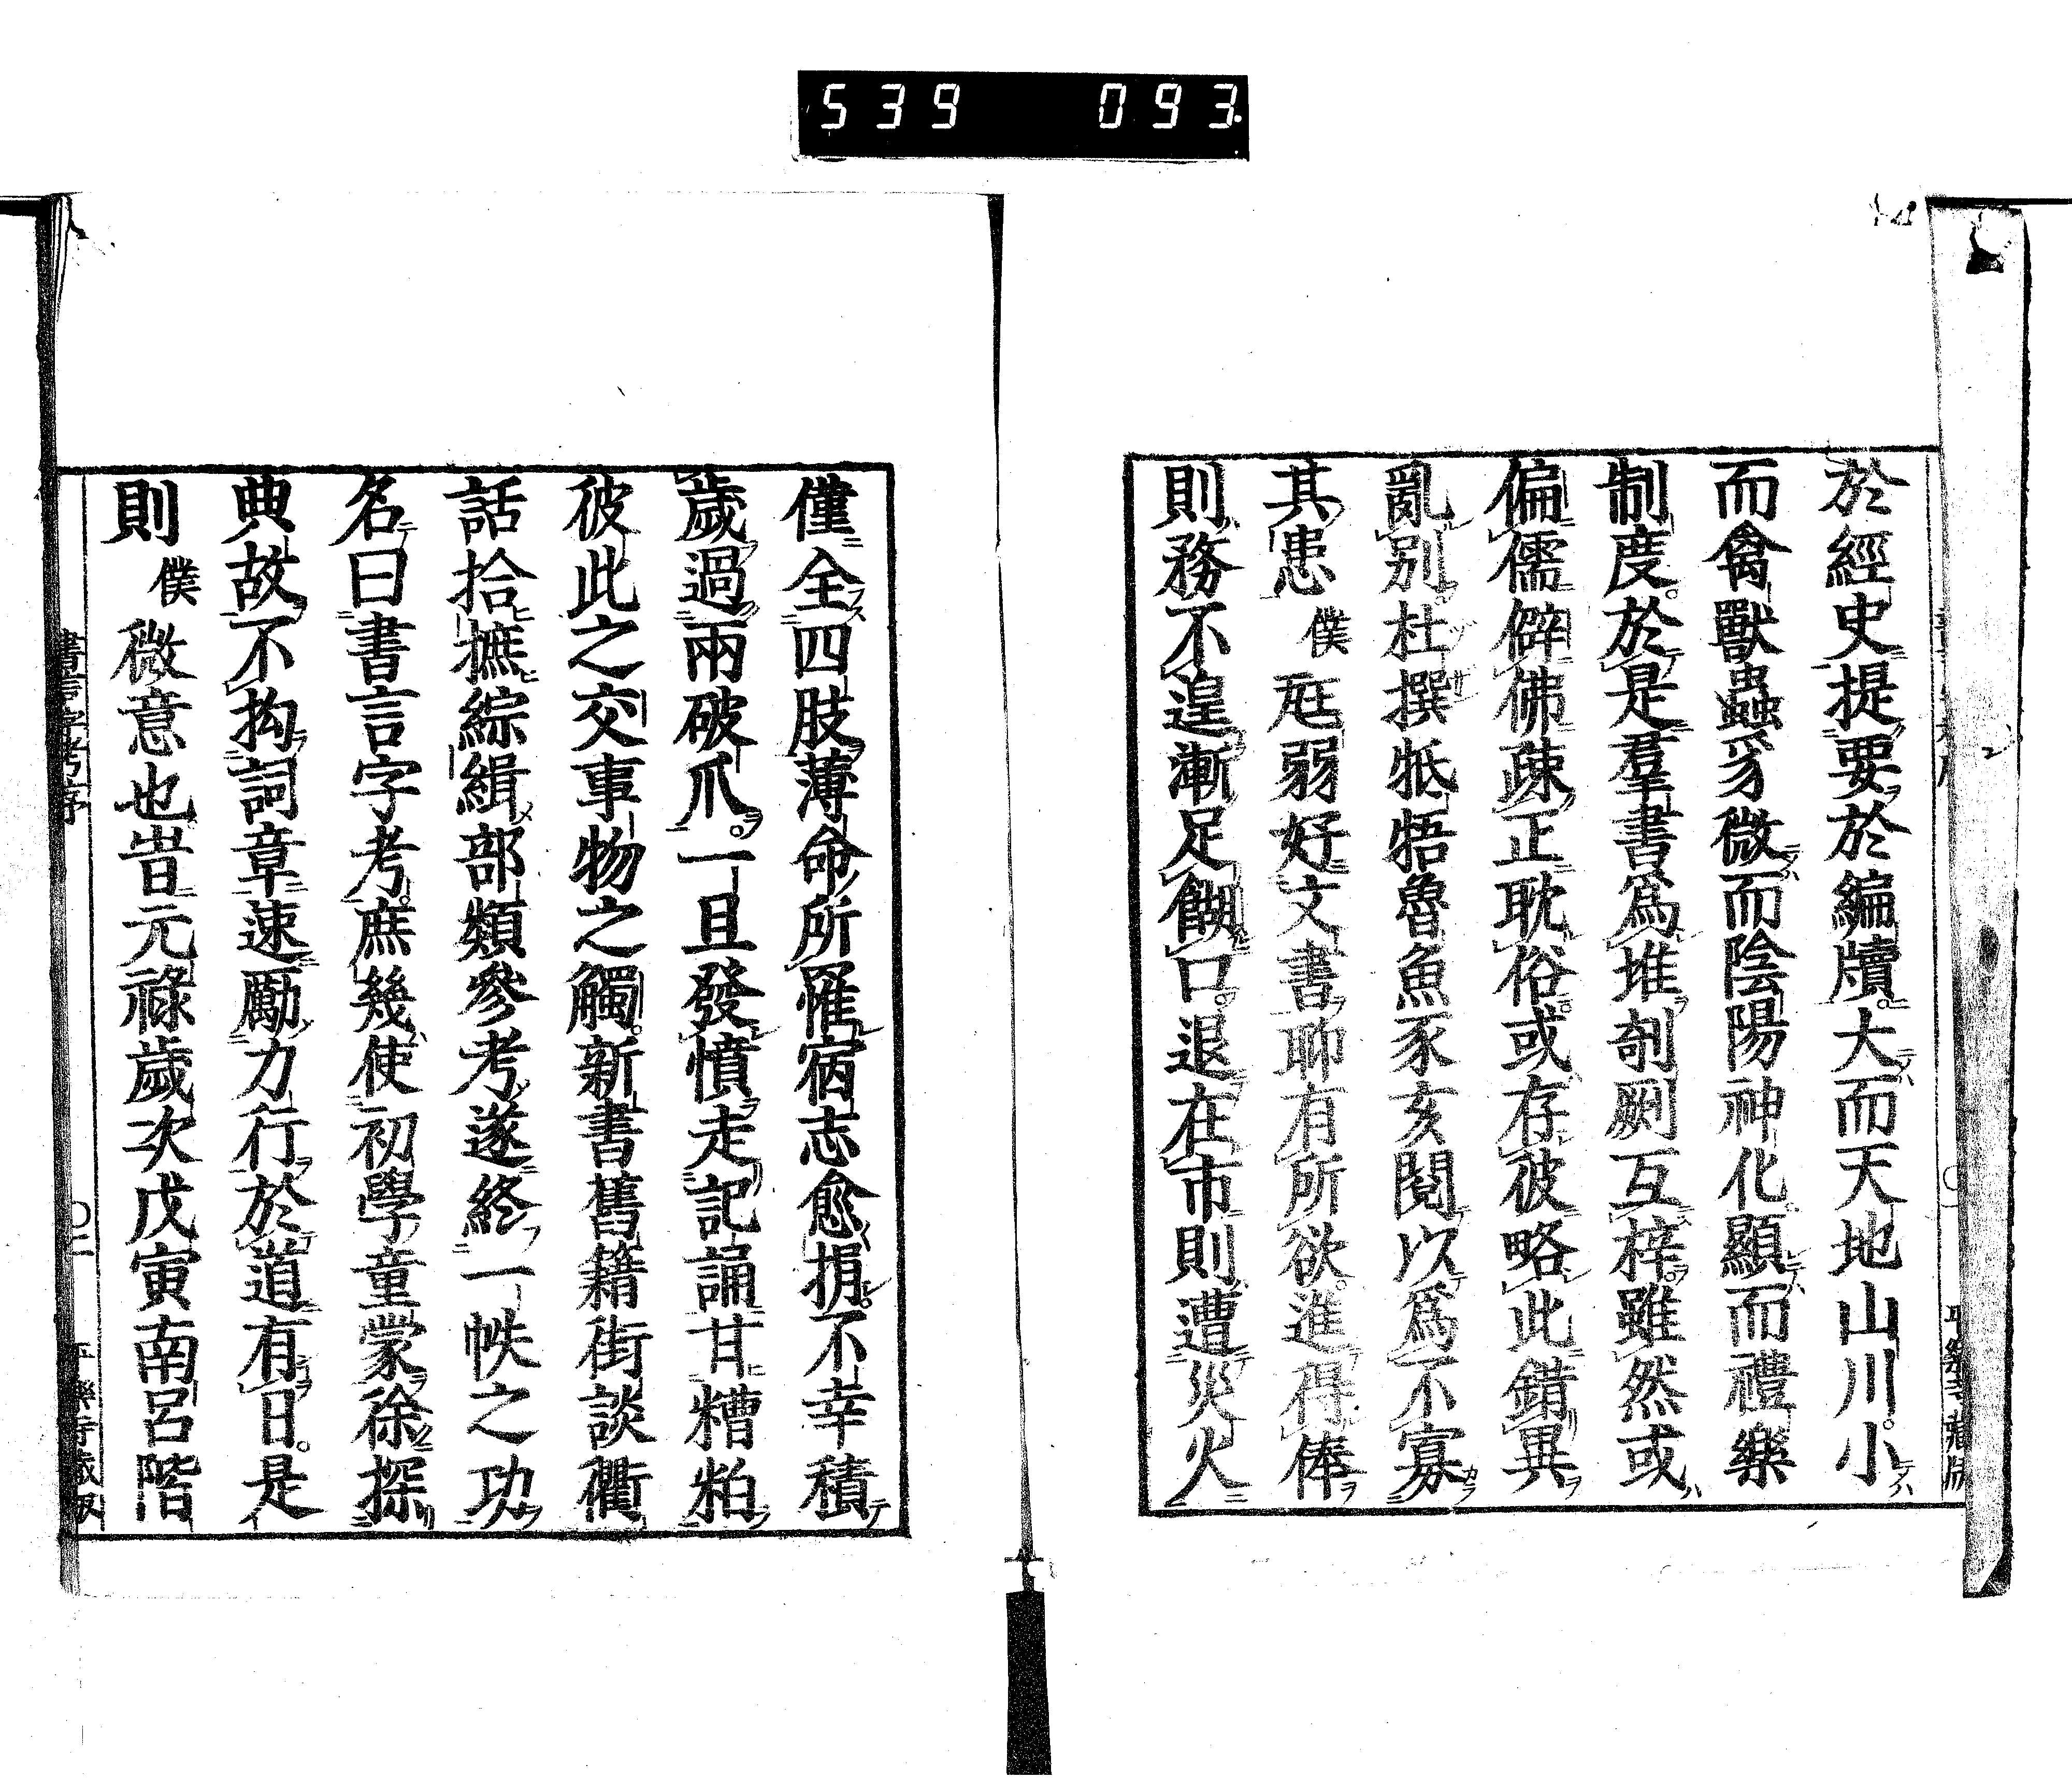 539 093
於經史提要於編牘大而天地山川小
而禽獸蟲豸微而陰陽神化顯而禮樂
制度於是羣書爲堆剞劂互梓雖然或
偏儒僻佛疎正耽俗或存彼略此錯異
亂別杜撰牴牾魯魚豕亥閱以爲不寡
其恚僕尫弱好文書聊有所欲進得俸
則務不遑漸足餬口退在市則遭災火
僅全四肢薄命所罹宿志愈捐不幸積
歲過兩破爪一旦發憤走記誦甘糟粕
彼此之交事物之觸新書舊籍街談衢
話拾摭綜緝部類參考遂終一帙之功
名曰書言字考庶幾使初學童蒙徐探
典故不拘詞章速勵力行於道有日是
則僕微意也旹元祿歲次戊寅南呂階
書言字考序 〇二